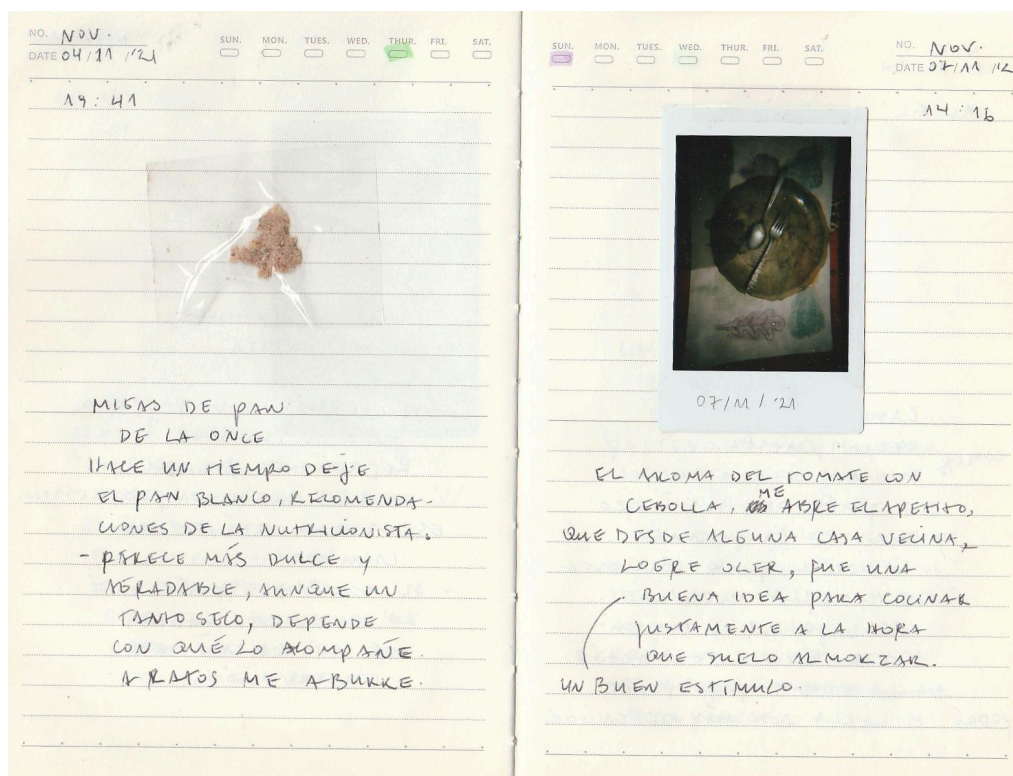 NO. NOV.
DATE 04/11/'21
SUN. MON. TUES. WED. THUR. FRI. SAT.
19:41
MIGAS DE PAN
DE LA ONCE
HACE UN TIEMPO DEJE
EL PAN BLANCO, RECOMENDA-
CIONES DE LA NUTRICIONISTA.
- PARECE MÁS DULCE Y
AGRADABLE, AUNQUE UN
TANTO SECO, DEPENDE
CON QUÉ LO ACOMPAÑE.
A RATOS ME ABURRE.
SUN. MON. TUES. WED. THUR. FRI. SAT.
NO. NOV.
DATE 07/11/'2
14:16
07/11/'21
EL AROMA DEL TOMATE CON
CEBOLLA, ME ABRE EL APETITO,
QUE DESDE ALGUNA CASA VECINA,
LOGRE OLER, FUE UNA
BUENA IDEA PARA COCINAR
JUSTAMENTE A LA HORA
QUE SUELO ALMORZAR.
UN BUEN ESTÍMULO.